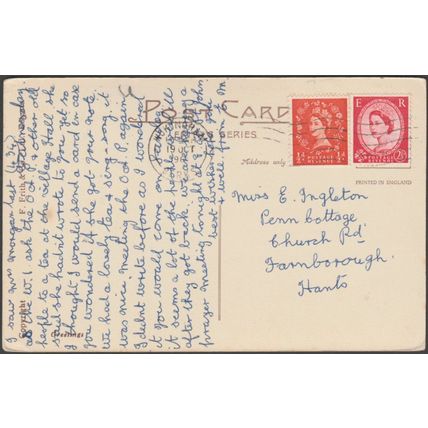 POST CARD
SERIES.
Address only
PRINTED IN ENGLAND
E R
POSTAGE REVENUE
½d ½d
POSTAGE REVENUE
2½d
Miss E. Ingleton
Penn Cottage
Church Rd
Farnborough
Hants
Copyright
F. Frith & Co
Greetings
I saw Mrs Morgan last
as the W.I ask the O.A.P. & other old
people to a tea at the Village Hall she
said she hadn't wrote to you yet so
I thought I would send a card in case
you wondered if she got your note
We had a lovely tea & sing song it
was nice meeting the O.A.P. again
I didn't write before as I wondered
if you would come on Saturday
it seems a lot of the had
after they got back we had a
prayer meeting long letter later
best wishes from John
& love from